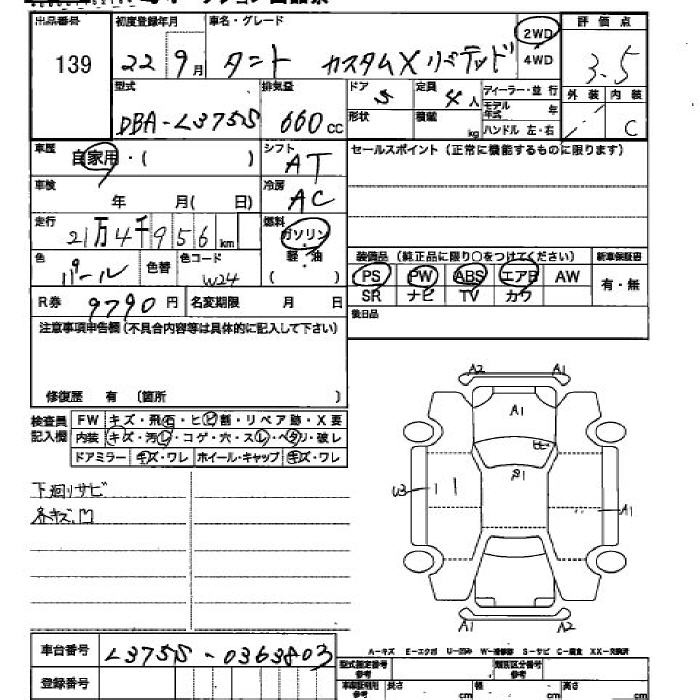 出品番号 初度登録年月 車名・グレード 評価点
139 22 9月 タント カスタムX リミテッド 2WD 4WD 3.5
型式 排気量 ドア 定員 ディーラー・並行 外装 内装
DBA-L375S 660cc 5 4人 モデル年式 年 C
形状 積載 kg ハンドル 左・右
車歴 自家用・( ) シフト AT セールスポイント(正常に機能するものに限ります)
車検 年 月( 日) 冷房 AC
走行 21万4千956km 燃料 ガソリン
軽・油
( )
色 パール 色替 色コード W24
装備品(純正品に限り○をつけてください) 新車保証書
PS PW ABS エアB AW 有・無
SR ナビ TV カワ
R券 9790円 名変期限 月 日 後日品
注意事項申告欄(不具合内容等は具体的に記入して下さい)
修復歴 有 (箇所 )
検査員記入欄 FW キズ・飛石・ヒビ割・リペア跡・X要
内装 キズ・汚レ・コゲ・穴・スレ・ヘタリ・破レ
ドアミラー キズ・ワレ ホイール・キャップ キズ・ワレ
下廻りサビ
各キズ、凹
A2 A1
A1
A1
W3
A1
A1 A2
A-キズ E-エクボ U-凹み W-補修跡 S-サビ C-腐食 XX-交換済
車台番号 L375S-0363803
型式指定番号 類別区分番号
登録番号 車庫証明用参考 長さ cm 幅 cm 高さ cm